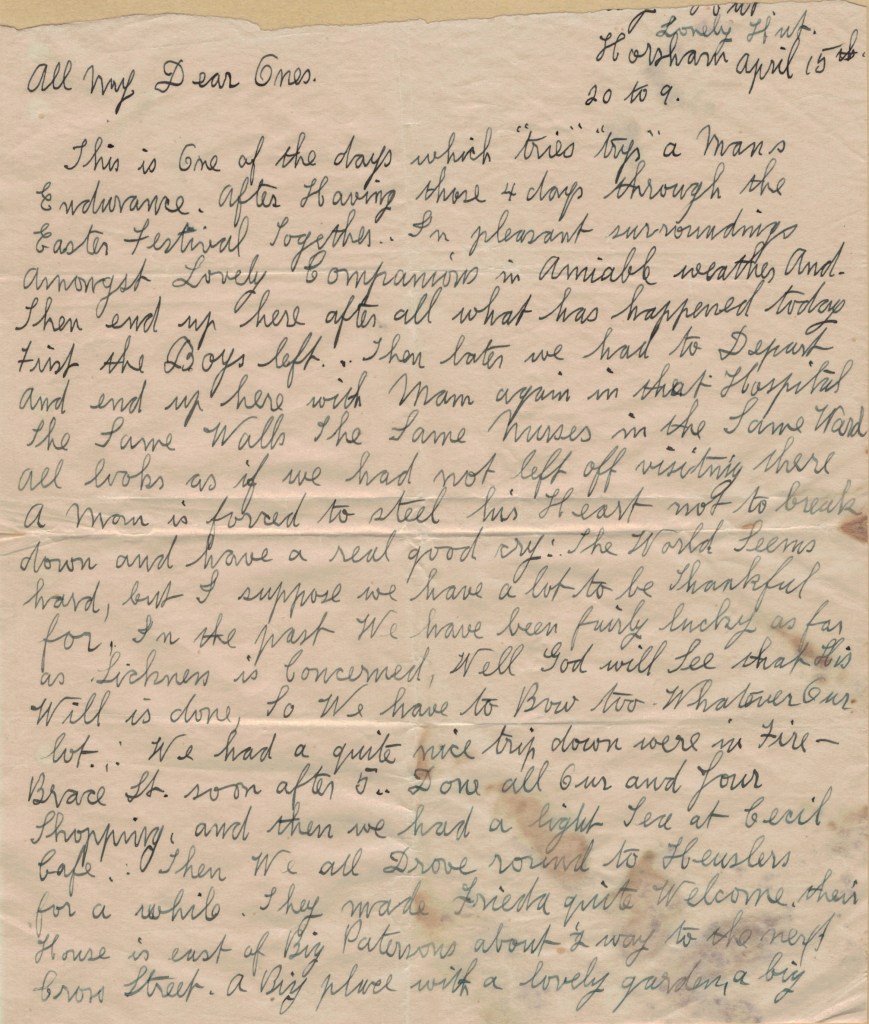 Lonely Hut.
Horsham April 15th.
20 to 9.
All my Dear Ones.
This is One of the days which "tries" "trys" a Mans
Endurance. After Having those 4 days through the
Easter Festival Together.. In pleasant surroundings
Amongst Lovely Companions in Amiable weather And.
Then end up here after all what has happened today
First the Boys left... Then later we had to Depart
And end up here with Mam again in that Hospital
The Same Walls The Same Nurses in the Same Ward
All looks as if we had not left off visiting there
A Man is forced to steel his Heart not to break
down and have a real good cry:. The World Seems
hard, but I suppose we have a lot to be Thankful
for. In the past We have been fairly lucky as far
as Sickness is Concerned, Well God will See that His
Will is done, So We have to Bow too Whatever Our
lot.:. We had a quite nice trip down were in Fire-
Brace St. soon after 5.. Done all Our and Your
Shopping, and then we had a light Tea at Cecil
Cafe.:. Then We all Drove round to Heuslers
for a while. They made Frieda quite Welcome. their
House is east of Big Patersons about ½ way to the next
Cross Street. A Big place with a lovely garden, a big